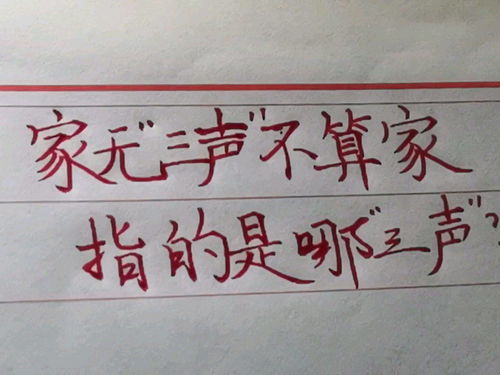 家无"三声"不算家
指的是哪"三声"?